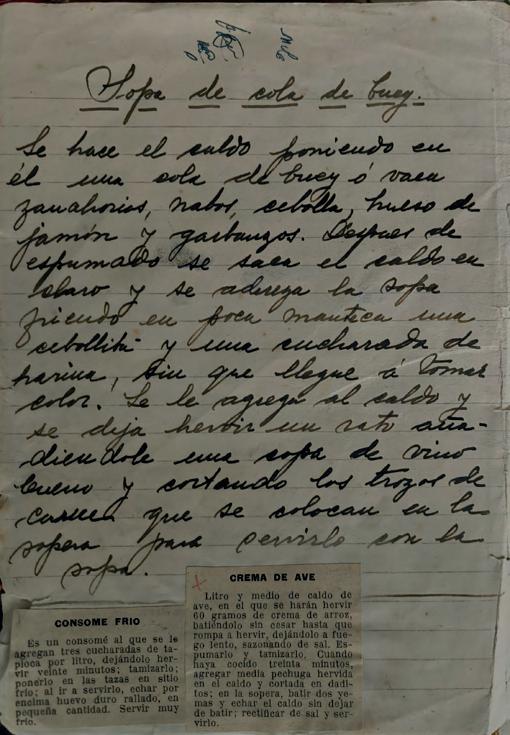 Sopa de cola de buey.
Se hace el caldo poniendo en
él una cola de buey ó vaca
zanahorias, nabos, cebolla, hueso de
jamón y garbanzos. Despues de
espumado se saca el caldo en
claro y se adereza la sopa
friendo en poca manteca una
cebollita y una cucharada de
harina, sin que llegue á tomar
color. Se le agrega al caldo y
se deja hervir un rato aña-
diendole una copa de vino
bueno y cortando los trozos de
carne que se colocan en la
sopera para servirlo con la
sopa.
CONSOME FRIO
Es un consomé al que se le
agregan tres cucharadas de ta-
pioca por litro, dejándolo her-
vir veinte minutos; tamizarlo;
ponerlo en las tazas en sitio
frío; al ir a servirlo, echar por
encima huevo duro rallado, en
pequeña cantidad. Servir muy
frío.
CREMA DE AVE
Litro y medio de caldo de
ave, en el que se harán hervir
60 gramos de crema de arroz,
batiéndolo sin cesar hasta que
rompa a hervir, dejándolo a fue-
go lento, sazonando de sal. Es-
pumarlo y tamizarlo. Cuando
haya cocido treinta minutos,
agregar media pechuga hervida
en el caldo y cortada en dadi-
tos; en la sopera, batir dos ye-
mas y echar el caldo sin dejar
de batir; rectificar de sal y ser-
virlo.